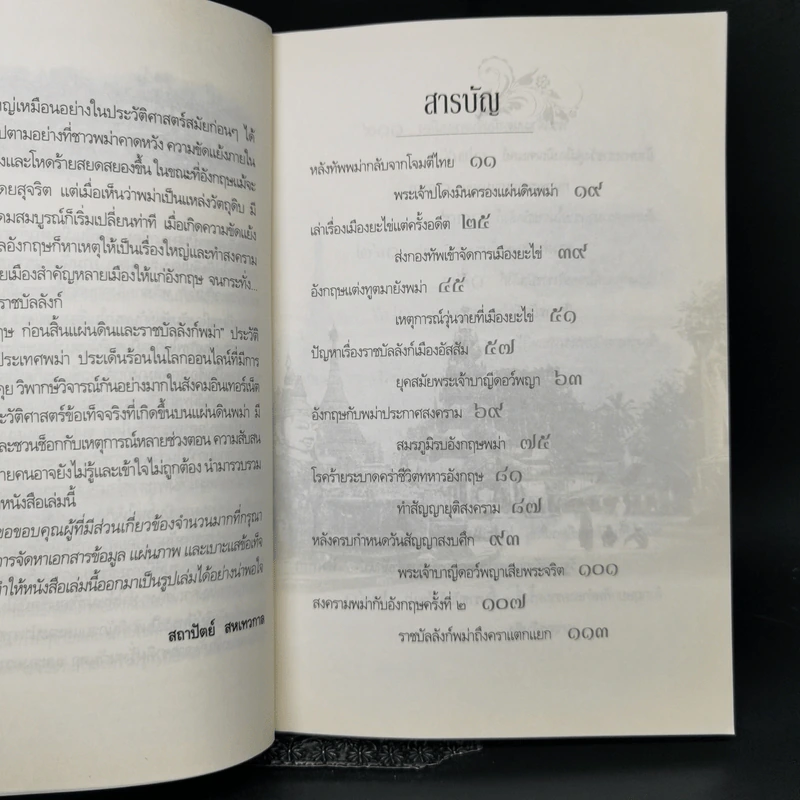 ญ่เหมือนอย่างในประวัติศาสตร์สมัยก่อนๆ ได้
ปตามอย่างที่ชาวพม่าคาดหวัง ความขัดแย้งภายใน
งและโหดร้ายสยดสยองขึ้น ในขณะที่อังกฤษแม้จะ
ดยสุจริต แต่เมื่อเห็นว่าพม่าเป็นแหล่งวัตถุดิบ มี
ดมสมบูรณ์ก็เริ่มเปลี่ยนท่าที เมื่อเกิดความขัดแย้ง
ลอังกฤษก็หาเหตุให้เป็นเรื่องใหญ่และทำสงคราม
ยเมืองสำคัญหลายเมืองให้แก่อังกฤษ จนกระทั่ง...
ราชบัลลังก์
ฤษ ก่อนสิ้นแผ่นดินและราชบัลลังก์พม่า" ประวัติ
ประเทศพม่า ประเด็นร้อนในโลกออนไลน์ที่มีการ
คุย วิพากษ์วิจารณ์กันอย่างมากในสังคมอินเทอร์เน็ต
ะวัติศาสตร์ข้อเท็จจริงที่เกิดขึ้นบนแผ่นดินพม่า มี
และชวนช็อกกับเหตุการณ์หลายช่วงตอน ความสับสน
ายคนอาจยังไม่รู้และเข้าใจไม่ถูกต้อง นำมารวบรวม
หนังสือเล่มนี้
ขอขอบคุณผู้ที่มีส่วนเกี่ยวข้องจำนวนมากที่กรุณา
การจัดหาเอกสารข้อมูล แผ่นภาพ และเบาะแสข้อเท็จ
ำให้หนังสือเล่มนี้ออกมาเป็นรูปเล่มได้อย่างน่าพอใจ
สถาปัตย์ สหเทวกาล
สารบัญ
หลังทัพพม่ากลับจากโจมตีไทย ๑๑
พระเจ้าปโดงมินครองแผ่นดินพม่า ๑๙
เล่าเรื่องเมืองยะไข่แต่ครั้งอดีต ๒๕
ส่งกองทัพเข้าจัดการเมืองยะไข่ ๓๙
อังกฤษแต่งทูตมายังพม่า ๔๕
เหตุการณ์วุ่นวายที่เมืองยะไข่ ๕๑
ปัญหาเรื่องราชบัลลังก์เมืองอัสสัม ๕๗
ยุคสมัยพระเจ้าบาญีดอว์พญา ๖๓
อังกฤษกับพม่าประกาศสงคราม ๖๙
สมรภูมิรบอังกฤษพม่า ๗๕
โรคร้ายระบาดคร่าชีวิตทหารอังกฤษ ๘๑
ทำสัญญายุติสงคราม ๘๗
หลังครบกำหนดวันสัญญาสงบศึก ๙๓
พระเจ้าบาญีดอว์พญาเสียพระจริต ๑๐๑
สงครามพม่ากับอังกฤษครั้งที่ ๒ ๑๐๗
ราชบัลลังก์พม่าถึงคราแตกแยก ๑๑๓